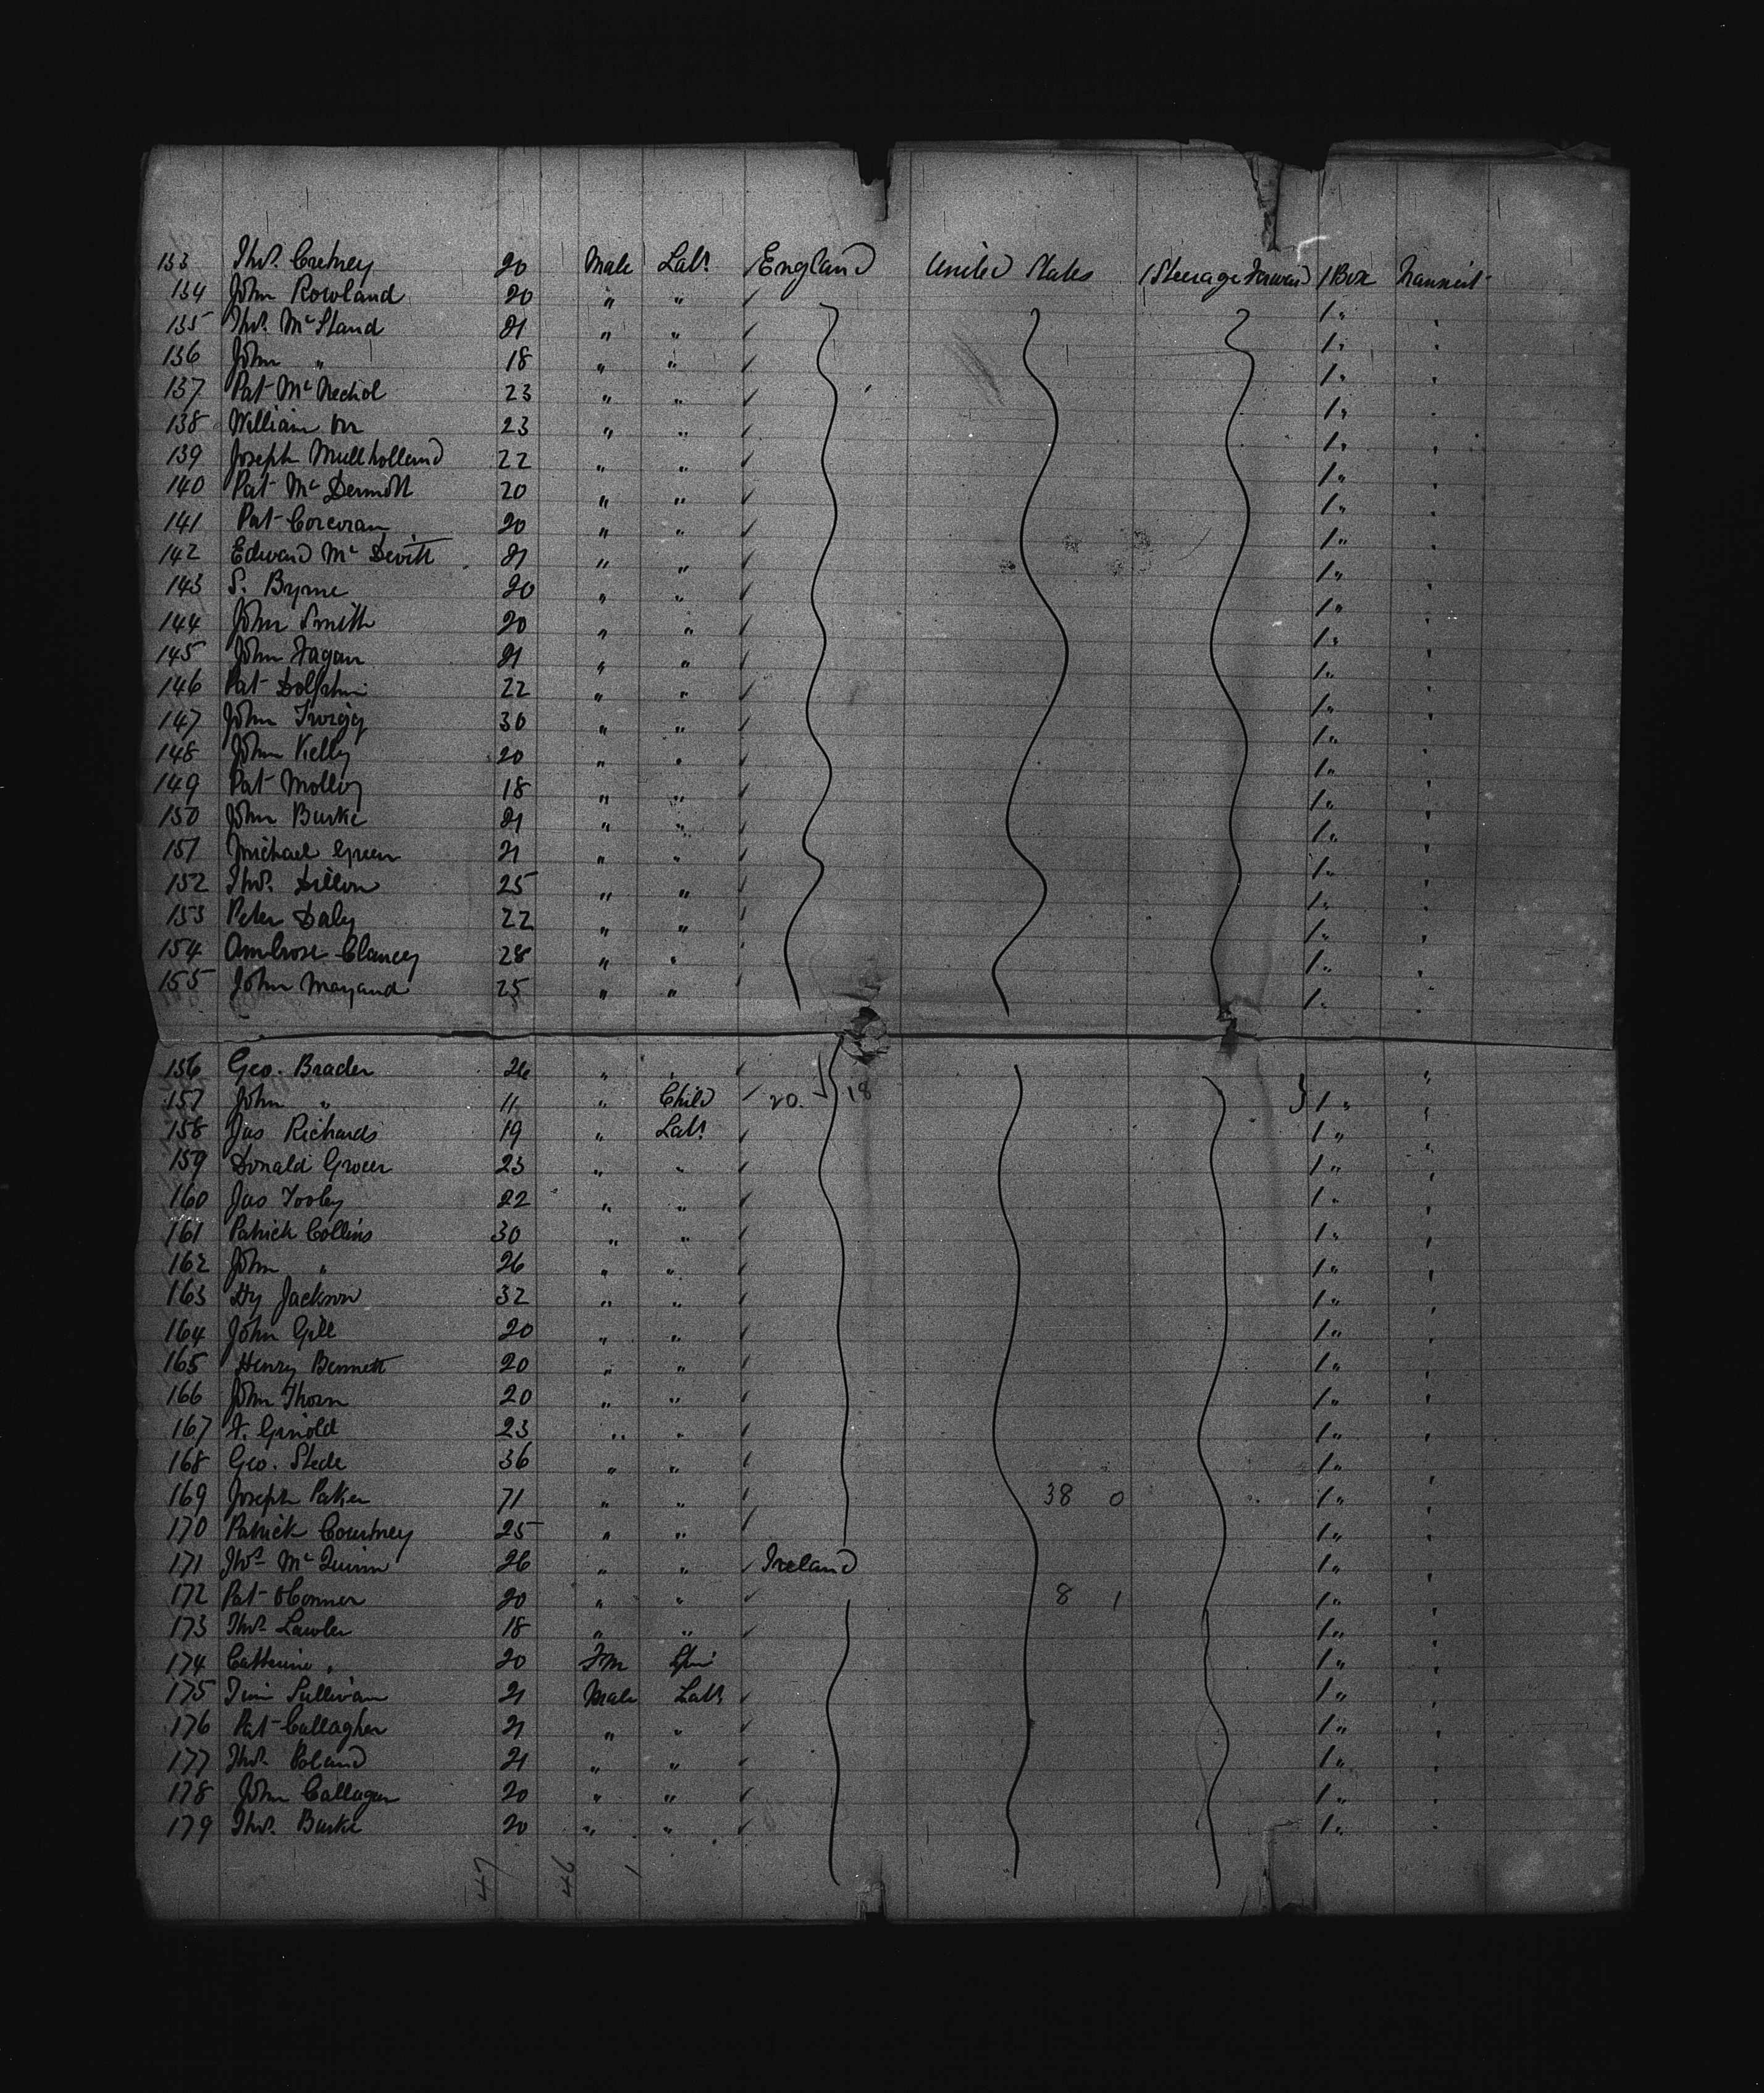 133 Thos. Cretney 20 Male Labr England United States Steerage Forward 1 Box Transit
134 John Rowland 20 " " 1 "
135 Thos. McStand 21 " " 1 "
136 John " 18 " " 1 "
137 Pat McNechol 23 " " 1 "
138 William Orr 23 " " 1 "
139 Joseph Mullholland 22 " " 1 "
140 Pat McDermott 20 " " 1 "
141 Pat Corcoran 20 " " 1 "
142 Edward McDevitt 21 " " 1 "
143 S. Byrne 20 " " 1 "
144 John Smith 20 " " 1 "
145 John Fagan 21 " " 1 "
146 Pat Dolphin 22 " " 1 "
147 John Twigg 30 " " 1 "
148 John Kelly 20 " " 1 "
149 Pat Molloy 18 " " 1 "
150 John Burke 21 " " 1 "
151 Michael Green 21 " " 1 "
152 Thos. Dillon 25 " " 1 "
153 Peter Daly 22 " " 1 "
154 Ambrose Clancey 28 " " 1 "
155 John Mayand 25 " " 1 "
156 Geo. Brader 26 " "
157 John " 11 " Child 20. 18 1 "
158 Jas Richards 19 " Labr 1 "
159 Donald Grocer 23 " " 1 "
160 Jas Tooley 22 " " 1 "
161 Patrick Collins 30 " " 1 "
162 John " 26 " " 1 "
163 Hy Jackson 32 " " 1 "
164 John Gill 20 " " 1 "
165 Henry Bennett 20 " " 1 "
166 John Thorn 20 " " 1 "
167 F. Grinold 23 " " 1 "
168 Geo. Stede 36 " " 1 "
169 Joseph Parker 71 " " 38 0 1 "
170 Patrick Courtney 25 " " 1 "
171 Thos McQuinn 26 " " Ireland 1 "
172 Pat OConner 20 " " 8 1 1 "
173 Thos Lawler 18 " " 1 "
174 Catherine " 20 Fm Spin 1 "
175 Tim Sullivan 21 Male Labr 1 "
176 Pat Gallagher 21 " " 1 "
177 Thos. Boland 21 " " 1 "
178 John Callagan 20 " " 1 "
179 Thos. Burke 20 " " 1 "
47 46 1